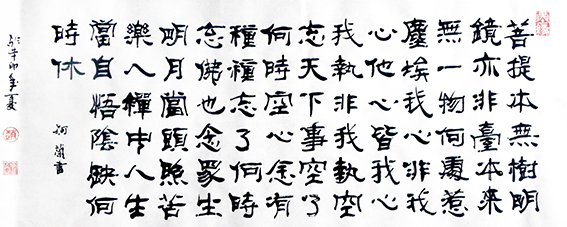 菩提本無樹明
鏡亦非臺本來
無一物何處惹
塵埃我心非我
心他心皆我心
我執非我執空
忘天下事空了
何時空心念有
種種忘了何時
忘佛也念眾生
明月當頭照苦
樂人禪中人生
當自悟陰缺何
時休
蘭書
於辛卯年夏